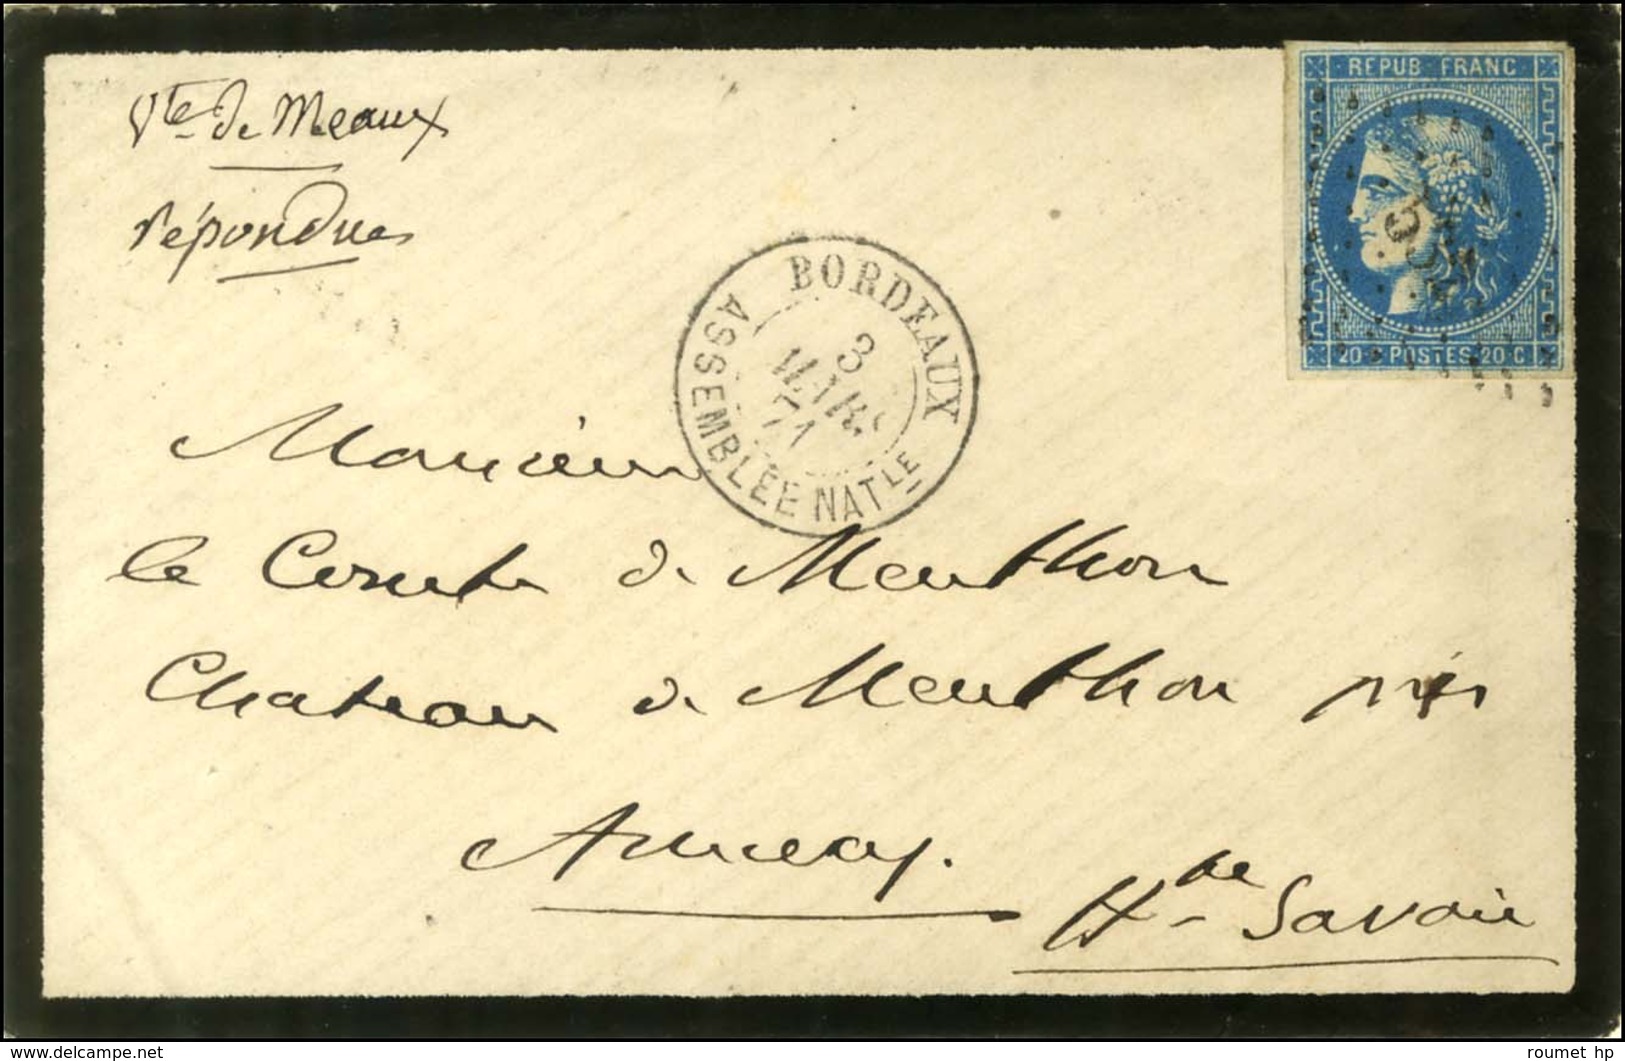 Vte de Meaux
répondue
REPUB FRANC
20 C POSTES 20 C
BORDEAUX
3
MARS
71
ASSEMBLÉE NATLE
Monsieur
le Comte de Menthon
Chateau de Menthon près
Annecy.
Hte Savoie
roumet hp